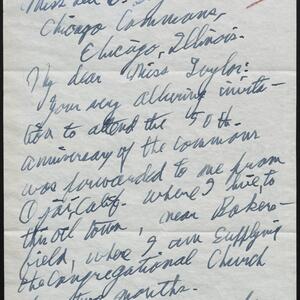 Miss Lea D.
Chicago Commons,
Chicago, Illinois.
My dear Miss Taylor:
Your very alluring invita-
tion to attend the 50th
anniversary of the commons
was forwarded to me from
Ojai Calif. where I live, to
this oil town, near Bakers-
field, where I am supplying
the Congregational Church
two months.